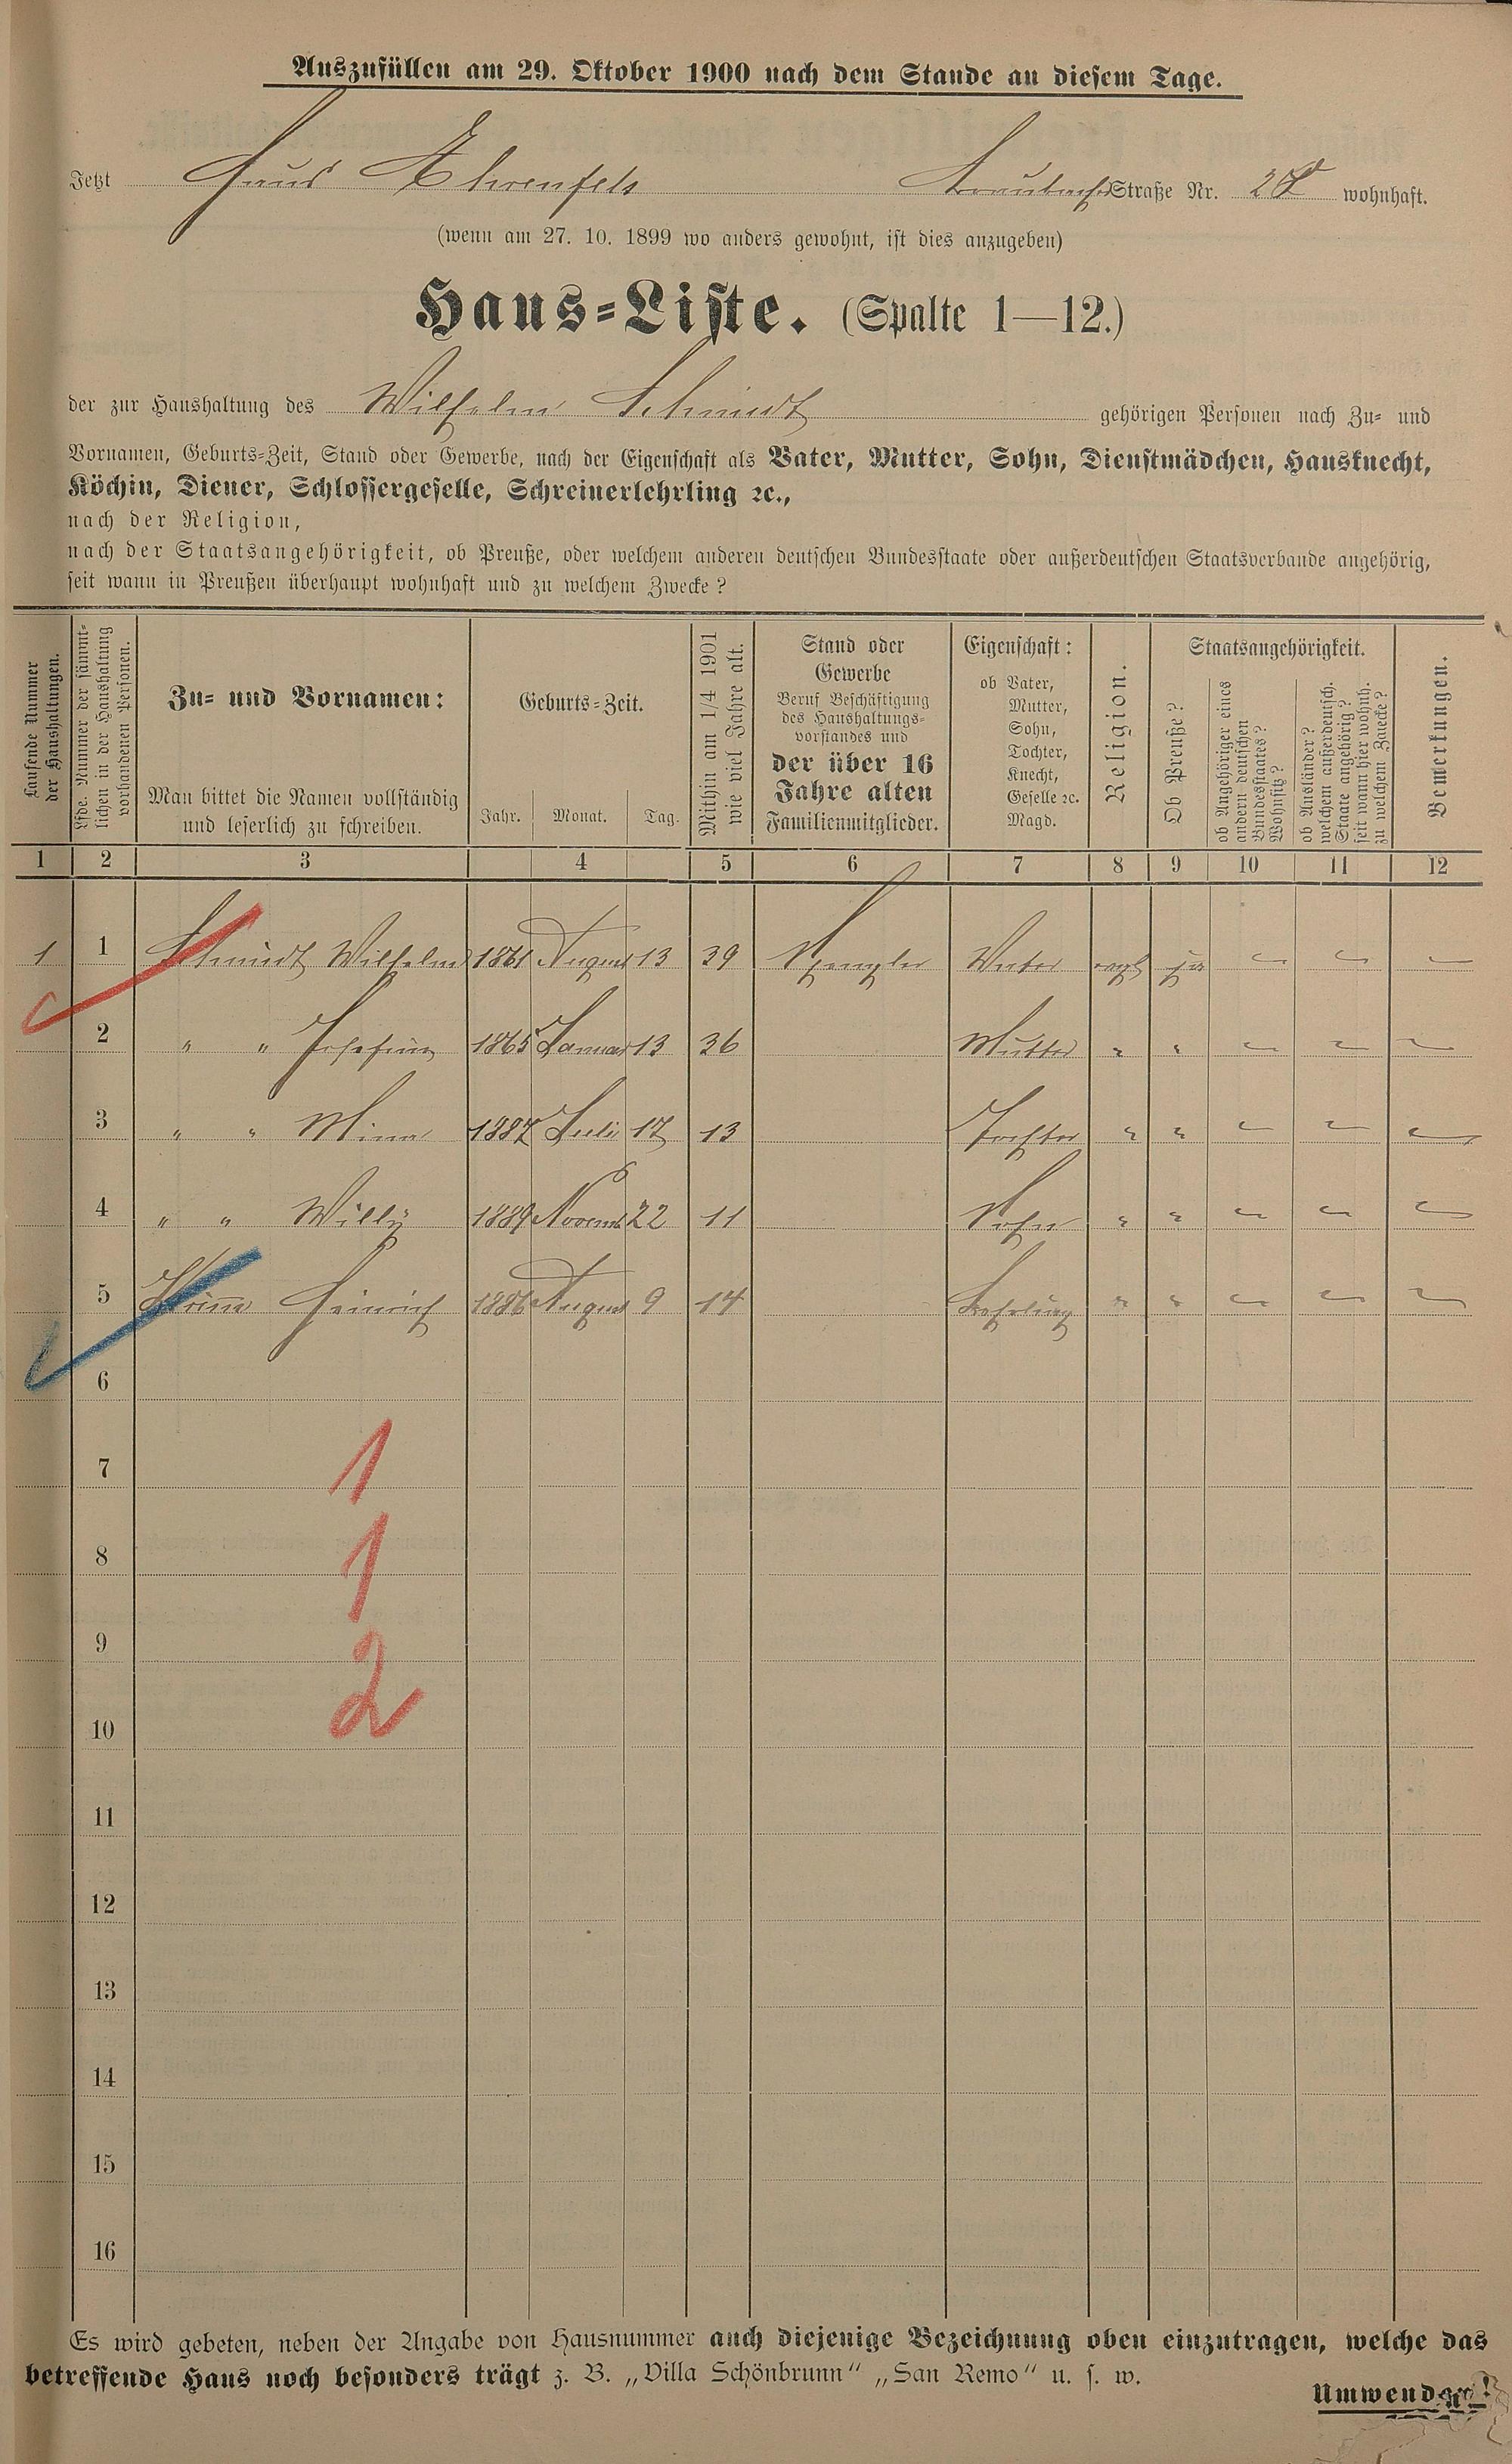 Auszufüllen am 29. Oktober 1900 nach dem Stande an diesem Tage.
Jetzt Haus Ehrenfels Straße Nr. wohnhaft.
(wenn am 27. 10. 1899 wo anders gewohnt, ist dies anzugeben)
Haus-Liste. (Spalte 1—12.)
der zur Haushaltung des Wilhelm Schmidt gehörigen Personen nach Zu- und
Vornamen, Geburts-Zeit, Stand oder Gewerbe, nach der Eigenschaft als Vater, Mutter, Sohn, Dienstmädchen, Hausknecht,
Köchin, Diener, Schlossergeselle, Schreinerlehrling ꝛc.,
nach der Religion,
nach der Staatsangehörigkeit, ob Preuße, oder welchem anderen deutschen Bundesstaate oder außerdeutschen Staatsverbande angehörig,
seit wann in Preußen überhaupt wohnhaft und zu welchem Zwecke?
Laufende Nummer
der Haushaltungen.
Lfde. Nummer der sämmt-
lichen in der Haushaltung
vorhandenen Personen.
Zu- und Vornamen:
Man bittet die Namen vollständig
und leserlich zu schreiben.
Geburts-Zeit.
Jahr. Monat. Tag.
Mithin am 1/4 1901
wie viel Jahre alt.
Stand oder
Gewerbe
Beruf Beschäftigung
des Haushaltungs-
vorstandes und
der über 16
Jahre alten
Familienmitglieder.
Eigenschaft:
ob Vater,
Mutter,
Sohn,
Tochter,
Knecht,
Geselle ꝛc.
Magd.
Religion.
Staatsangehörigkeit.
Ob Preuße?
ob Angehöriger eines
andern deutschen
Bundesstaates?
Wohnsitz?
ob Ausländer?
welchem außerdeutsch.
Staate angehörig?
seit wann hier wohnh.
zu welchem Zwecke?
Bemerkungen.
1 2 3 4 5 6 7 8 9 10 11 12
1 1 Schmidt Wilhelm 1861 August 13 39 Spengler Vater evgl ja – – –
2 " " Josefine 1865 Januar 13 36 Mutter " " – – –
3 " " Mina 1887 Juli 17 13 Tochter " " – – –
4 " " Willy 1889 Novemb 22 11 Sohn " " – – –
5 Heinrich 1886 August 9 14 Lehrling " " – – –
6
7 1
8 1
9 2
10
11
12
13
14
15
16
Es wird gebeten, neben der Angabe von Hausnummer auch diejenige Bezeichnung oben einzutragen, welche das
betreffende Haus noch besonders trägt z. B. „Villa Schönbrunn“ „San Remo“ u. s. w.
Umwenden!